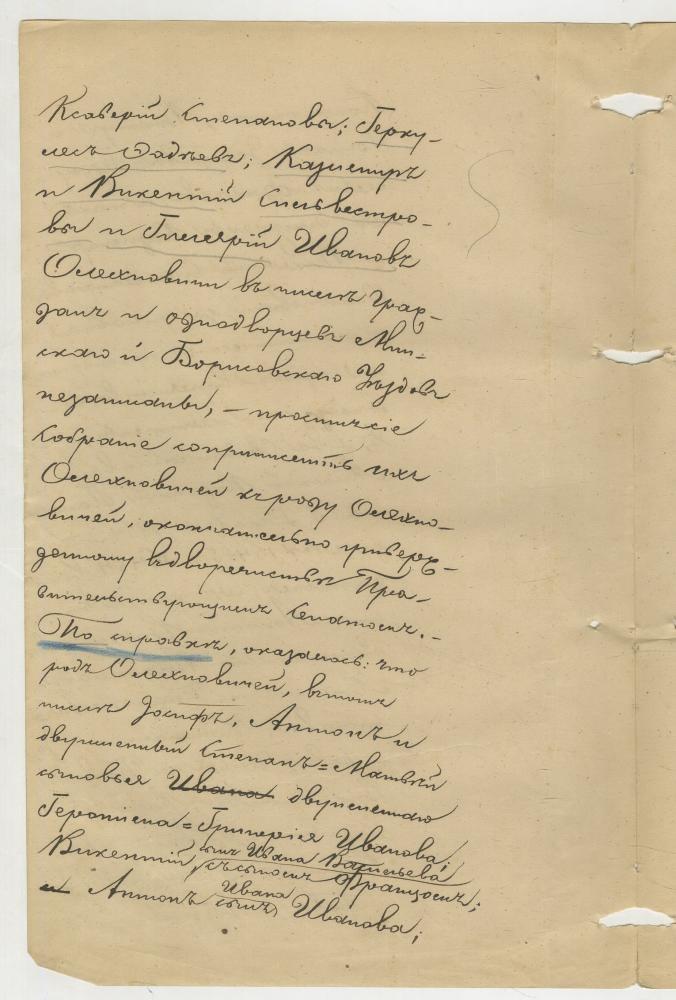 Ксаверій Степановы; Герку-
лесъ Фадѣевъ; Казимиръ
и Викентій Сильвестро-
вы и Гилярій Ивановъ
Олехновичи въ числѣ граж-
данъ и однодворцевъ Мин-
скаго и Борисовскаго уѣздовъ
незаписаны, –
собраніе сопричислить сихъ
Олехновичей къ роду Олехно-
вичей, окончательно утверж-
денному въ дворянствѣ Пра-
вительствующимъ Сенатомъ. –
По справкѣ, оказалось: что
родъ Олехновичей, въ томъ
числѣ Іосифъ, Антонъ и
двуименный Степанъ=Матвѣй
сыновья Ивана двуименнаго
Геронима=Григорія Иванова;
сынъ Ивана Васильева
Викентій съ сыномъ Францомъ;
Ивана
и Антонъ сынъ Иванова;